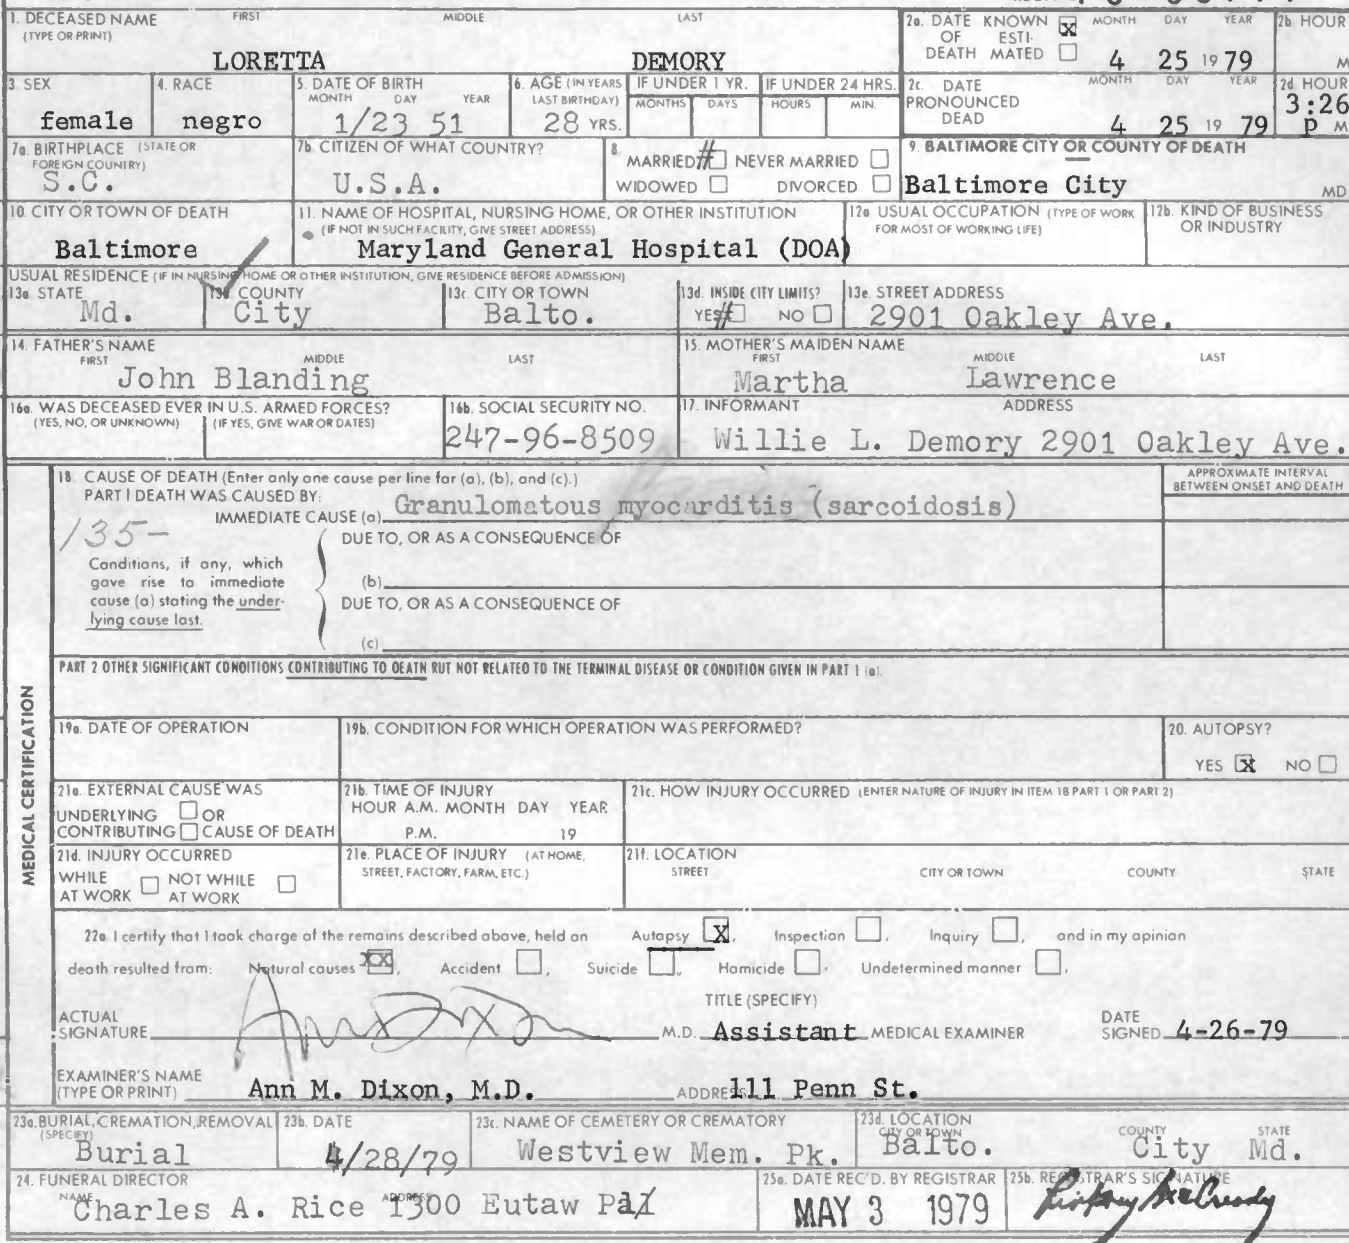 1. DECEASED NAME (TYPE OR PRINT) FIRST MIDDLE LAST
LORETTA DEMORY
2a. DATE KNOWN X OF ESTI- DEATH MATED MONTH DAY YEAR
4 25 19 79
2b HOUR M
3. SEX
female
4. RACE
negro
5. DATE OF BIRTH MONTH DAY YEAR
1/23 51
6. AGE (IN YEARS LAST BIRTHDAY)
28 YRS.
IF UNDER 1 YR. MONTHS DAYS
IF UNDER 24 HRS. HOURS MIN.
2c. DATE PRONOUNCED DEAD MONTH DAY YEAR
4 25 19 79
2d HOUR
3:26
P M
7a. BIRTHPLACE (STATE OR FOREIGN COUNTRY)
S.C.
7b. CITIZEN OF WHAT COUNTRY?
U.S.A.
8. MARRIED # NEVER MARRIED
WIDOWED DIVORCED
9. BALTIMORE CITY OR COUNTY OF DEATH
Baltimore City MD.
10. CITY OR TOWN OF DEATH
Baltimore
11. NAME OF HOSPITAL, NURSING HOME, OR OTHER INSTITUTION
(IF NOT IN SUCH FACILITY, GIVE STREET ADDRESS)
Maryland General Hospital (DOA)
12a USUAL OCCUPATION (TYPE OF WORK FOR MOST OF WORKING LIFE)
12b. KIND OF BUSINESS OR INDUSTRY
USUAL RESIDENCE (IF IN NURSING HOME OR OTHER INSTITUTION, GIVE RESIDENCE BEFORE ADMISSION)
13a STATE
Md.
13b COUNTY
City
13c. CITY OR TOWN
Balto.
13d. INSIDE CITY LIMITS?
YES # NO
13e. STREET ADDRESS
2901 Oakley Ave.
14. FATHER'S NAME FIRST MIDDLE LAST
John Blanding
15. MOTHER'S MAIDEN NAME FIRST MIDDLE LAST
Martha Lawrence
16a. WAS DECEASED EVER IN U.S. ARMED FORCES?
(YES, NO, OR UNKNOWN) (IF YES, GIVE WAR OR DATES)
16b. SOCIAL SECURITY NO.
247-96-8509
17. INFORMANT ADDRESS
Willie L. Demory 2901 Oakley Ave.
MEDICAL CERTIFICATION
18. CAUSE OF DEATH (Enter only one cause per line for (a), (b), and (c).)
APPROXIMATE INTERVAL BETWEEN ONSET AND DEATH
PART I DEATH WAS CAUSED BY:
IMMEDIATE CAUSE (a) Granulomatous myocarditis (sarcoidosis)
135-
DUE TO, OR AS A CONSEQUENCE OF
Conditions, if any, which
gave rise to immediate
cause (a) stating the under-
lying cause last.
(b)
DUE TO, OR AS A CONSEQUENCE OF
(c)
PART 2 OTHER SIGNIFICANT CONDITIONS CONTRIBUTING TO DEATH BUT NOT RELATED TO THE TERMINAL DISEASE OR CONDITION GIVEN IN PART 1 (a).
19a. DATE OF OPERATION
19b. CONDITION FOR WHICH OPERATION WAS PERFORMED?
20. AUTOPSY?
YES X NO
21a. EXTERNAL CAUSE WAS
UNDERLYING OR
CONTRIBUTING CAUSE OF DEATH
21b. TIME OF INJURY
HOUR A.M. MONTH DAY YEAR
P.M. 19
21c. HOW INJURY OCCURRED (ENTER NATURE OF INJURY IN ITEM 18 PART 1 OR PART 2)
21d. INJURY OCCURRED
WHILE AT WORK NOT WHILE AT WORK
21e. PLACE OF INJURY (AT HOME, STREET, FACTORY, FARM, ETC.)
21f. LOCATION
STREET CITY OR TOWN COUNTY STATE
22a I certify that I took charge of the remains described above, held an Autopsy X, Inspection , Inquiry , and in my opinion
death resulted from: Natural causes XX, Accident , Suicide , Homicide , Undetermined manner .
ACTUAL SIGNATURE Ann Dixon M.D.
TITLE (SPECIFY)
Assistant MEDICAL EXAMINER
DATE SIGNED 4-26-79
EXAMINER'S NAME (TYPE OR PRINT) Ann M. Dixon, M.D. ADDRESS 111 Penn St.
23a. BURIAL, CREMATION, REMOVAL (SPECIFY)
Burial
23b. DATE
4/28/79
23c. NAME OF CEMETERY OR CREMATORY
Westview Mem. Pk.
23d. LOCATION CITY OR TOWN COUNTY STATE
Balto. City Md.
24. FUNERAL DIRECTOR
NAME ADDRESS
Charles A. Rice 1300 Eutaw Pal
25a. DATE REC'D. BY REGISTRAR
MAY 3 1979
25b. REGISTRAR'S SIGNATURE